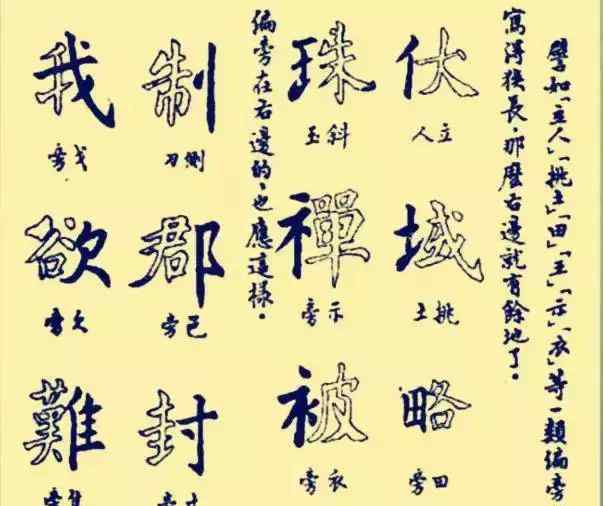 譬如「立人」「挑土」「田」「王」「示」「衣」等一類偏旁
寫得狹長，那麼右邊就有餘地了。
伏
立人
域
挑土
略
田旁
珠
斜玉
禪
示旁
被
衣旁
偏旁在右邊的，也應這樣。
制
側刀
郡
邑旁
封
我
戈旁
欲
欠旁
難